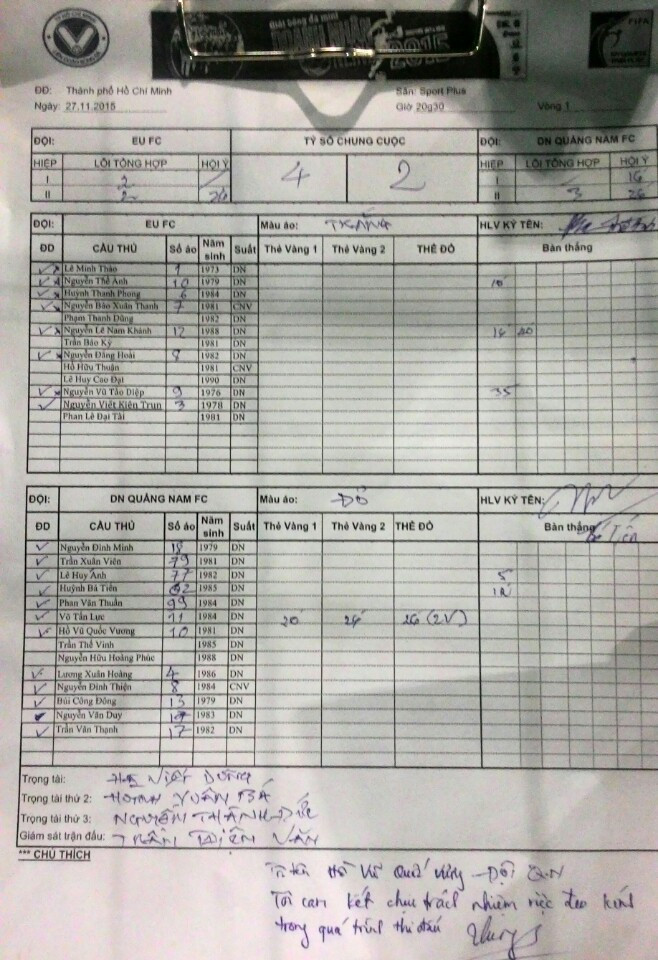 Giải bóng đá mini
DOANH NHÂN
2015
FIFA
ĐĐ: Thành phố Hồ Chí Minh Sân: Sport Plus
Ngày: 27.11.2015 Giờ 20g30 Vòng 1
ĐỘI: EU FC TỶ SỐ CHUNG CUỘC ĐỘI: DN QUẢNG NAM FC
HIỆP LỖI TỔNG HỢP HỘI Ý 4 2 HIỆP LỖI TỔNG HỢP HỘI Ý
I 2 I 16
II 2 II 3
ĐỘI: EU FC Màu áo: TRẮNG HLV KÝ TÊN:
ĐD CẦU THỦ Số áo Năm sinh Suất Thẻ Vàng 1 Thẻ Vàng 2 THẺ ĐỎ Bàn thắng
Lê Minh Thảo 1 1973 DN
Nguyễn Thế Anh 10 1979 DN
Huỳnh Thanh Phong 6 1984 DN
Nguyễn Bảo Xuân Thanh 7 1981 CNV
Phạm Thanh Dũng 1982 DN
Nguyễn Lê Nam Khánh 12 1988 DN 16 20
Trần Bảo Kỳ 1981 DN
Nguyễn Đăng Hoài 8 1982 DN
Hồ Hữu Thuận 1981 CNV
Lê Huy Cao Đạt 1990 DN
Nguyễn Vũ Tảo Diệp 9 1976 DN 35
Nguyễn Viết Kiên Trun 3 1978 DN
Phan Lê Đại Tài 1981 DN
ĐỘI: DN QUẢNG NAM FC Màu áo: ĐỎ HLV KÝ TÊN:
ĐD CẦU THỦ Số áo Năm sinh Suất Thẻ Vàng 1 Thẻ Vàng 2 THẺ ĐỎ Bàn thắng
Nguyễn Đình Minh 18 1979 DN
Trần Xuân Viên 79 1981 DN
Lê Huy Anh 77 1982 DN 5
Huỳnh Bá Tiến 02 1985 DN
Phan Văn Thuấn 99 1984 DN
Võ Tấn Lực 11 1984 DN 20 26 26 (2V)
Hồ Vũ Quốc Vương 10 1981 DN
Trần Thế Vinh 1985 DN
Nguyễn Hữu Hoàng Phúc 1988 DN
Lương Xuân Hoàng 4 1986 DN
Nguyễn Đình Thiện 8 1984 CNV
Bùi Công Đông 13 1979 DN
Nguyễn Văn Duy 1983 DN
Trần Văn Thạnh 17 1982 DN
Trọng tài: Việt Dũng
Trọng tài thứ 2: HUỲNH XUÂN BÁ
Trọng tài thứ 3: NGUYỄN THÀNH ĐỨC
Giám sát trận đấu: TRẦN DIÊN VĂN
*** CHÚ THÍCH
Tôi tên Hồ Vũ Quốc Vương – Đội Q.N
Tôi cam kết chịu trách nhiệm việc đeo kính
trong quá trình thi đấu